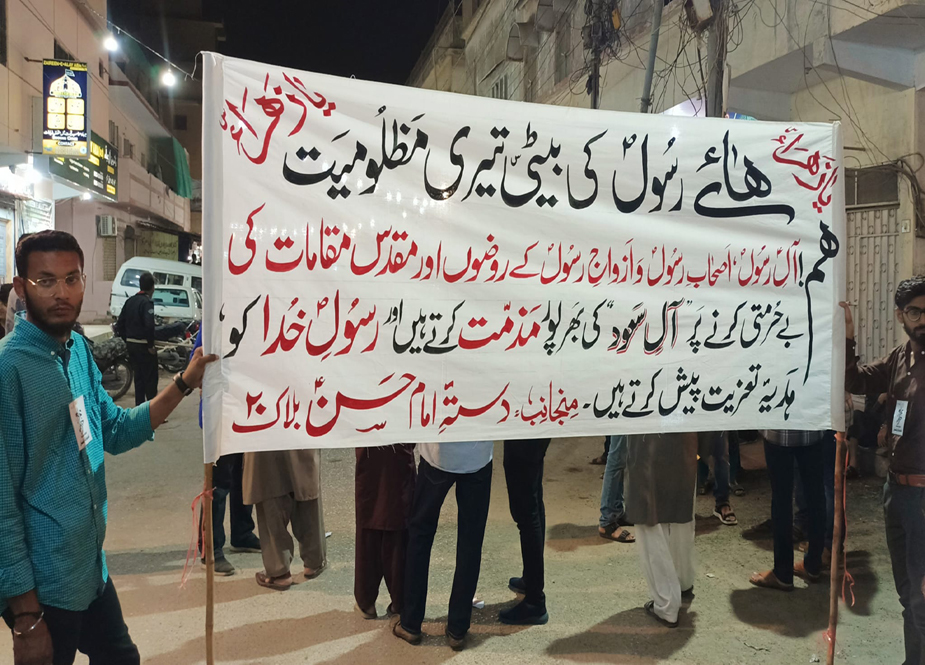 یا زھراءؑ
یا زھراءؑ
ھائے رسولؐ کی بیٹیؑ تیری مظلومیت
ہم! آلِ رسولؐ، اصحابِ رسولؐ و ازواجِ رسولؐ کے روضوں اور مقدس مقامات کی
بے حرمتی کرنے پر "آلِ سعود" کی بھرپور مذمّت کرتے ہیں اور رسولِؐ خُدا کو،
ہدیۂ تعزیت پیش کرتے ہیں۔ منجانب: دستۂ امام حسنؑ بلاک ۲۰